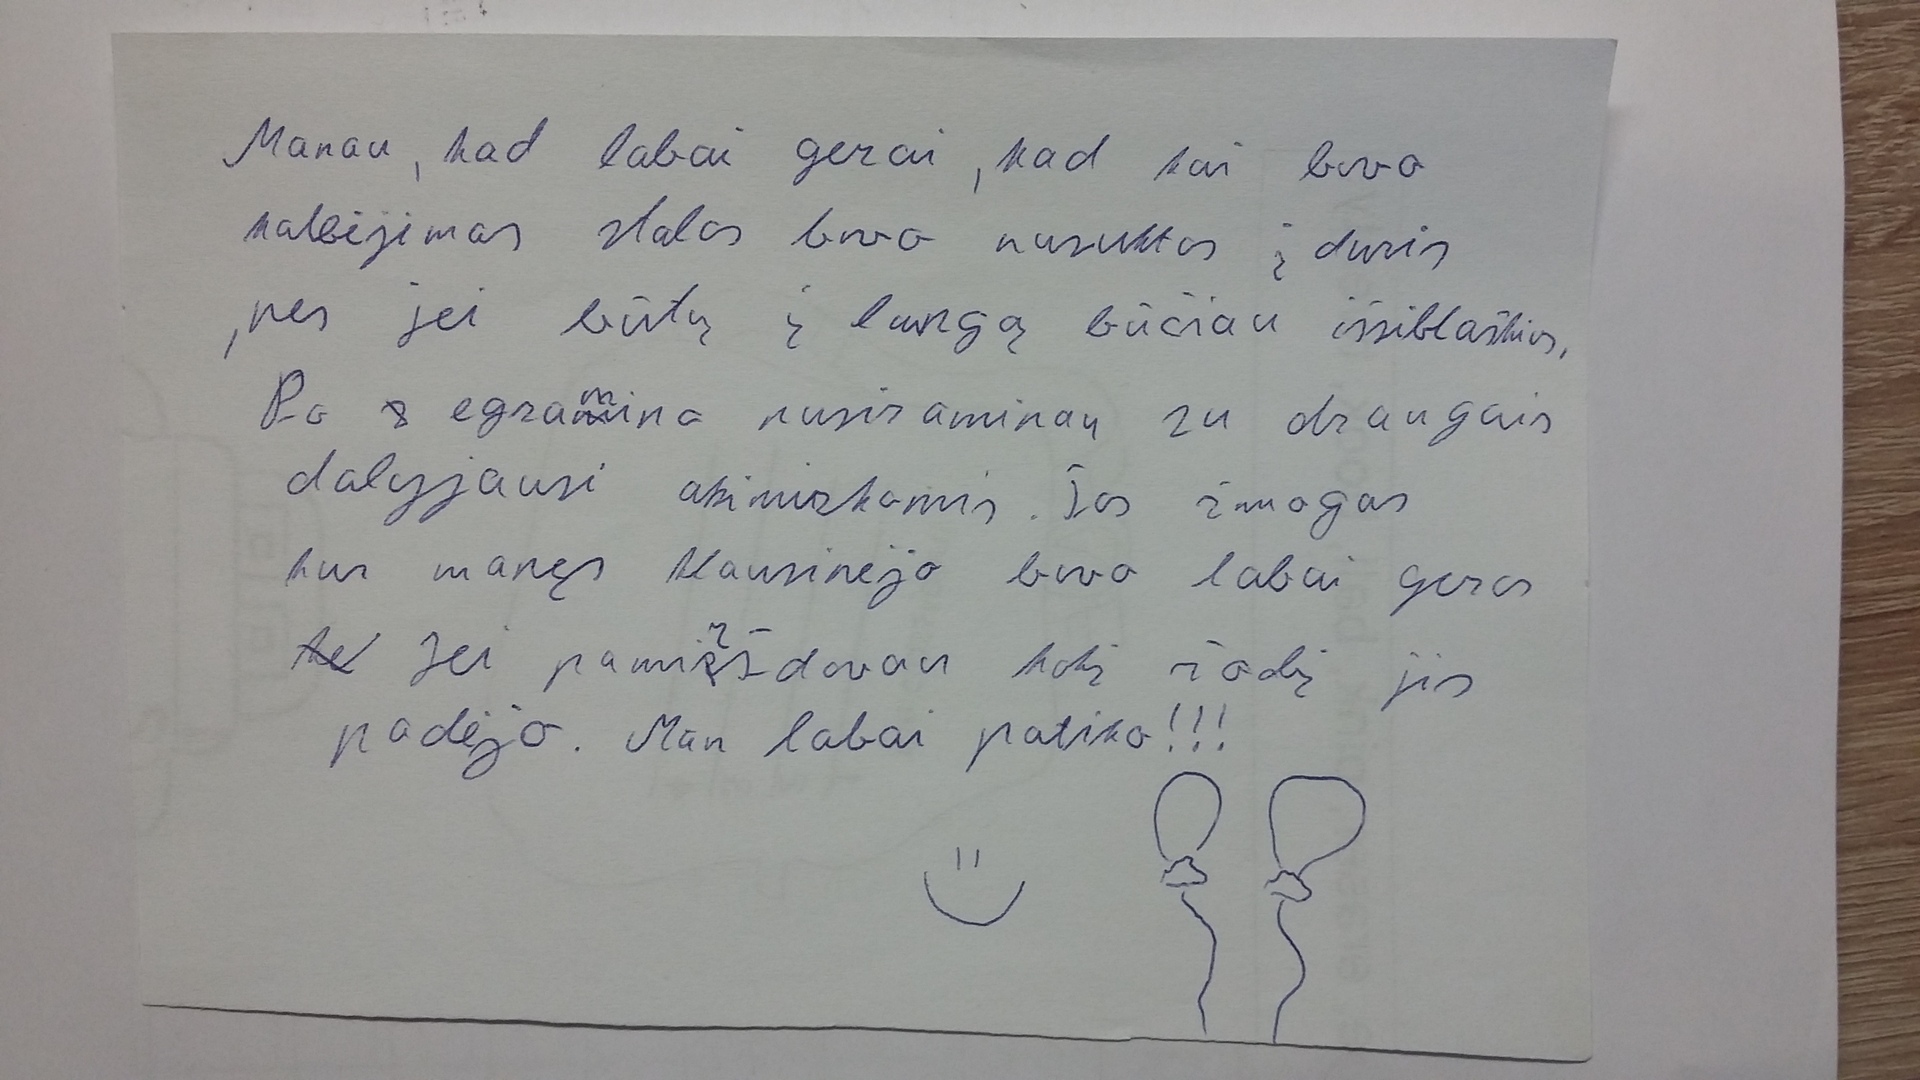 Manau, kad labai gerai, kad kai buvo
kalbėjimas stalas buvo nusuktas į duris
,nes jei būtų į langą būčiau išsiblaškius,
Po egzamino nusiraminau su draugais
dalyjausi akimirkomis. Tas žmogas
kur manęs klausinėjo buvo labai geras
Jei pamirždavau kokį žodį jis
padėjo. Man labai patiko!!!